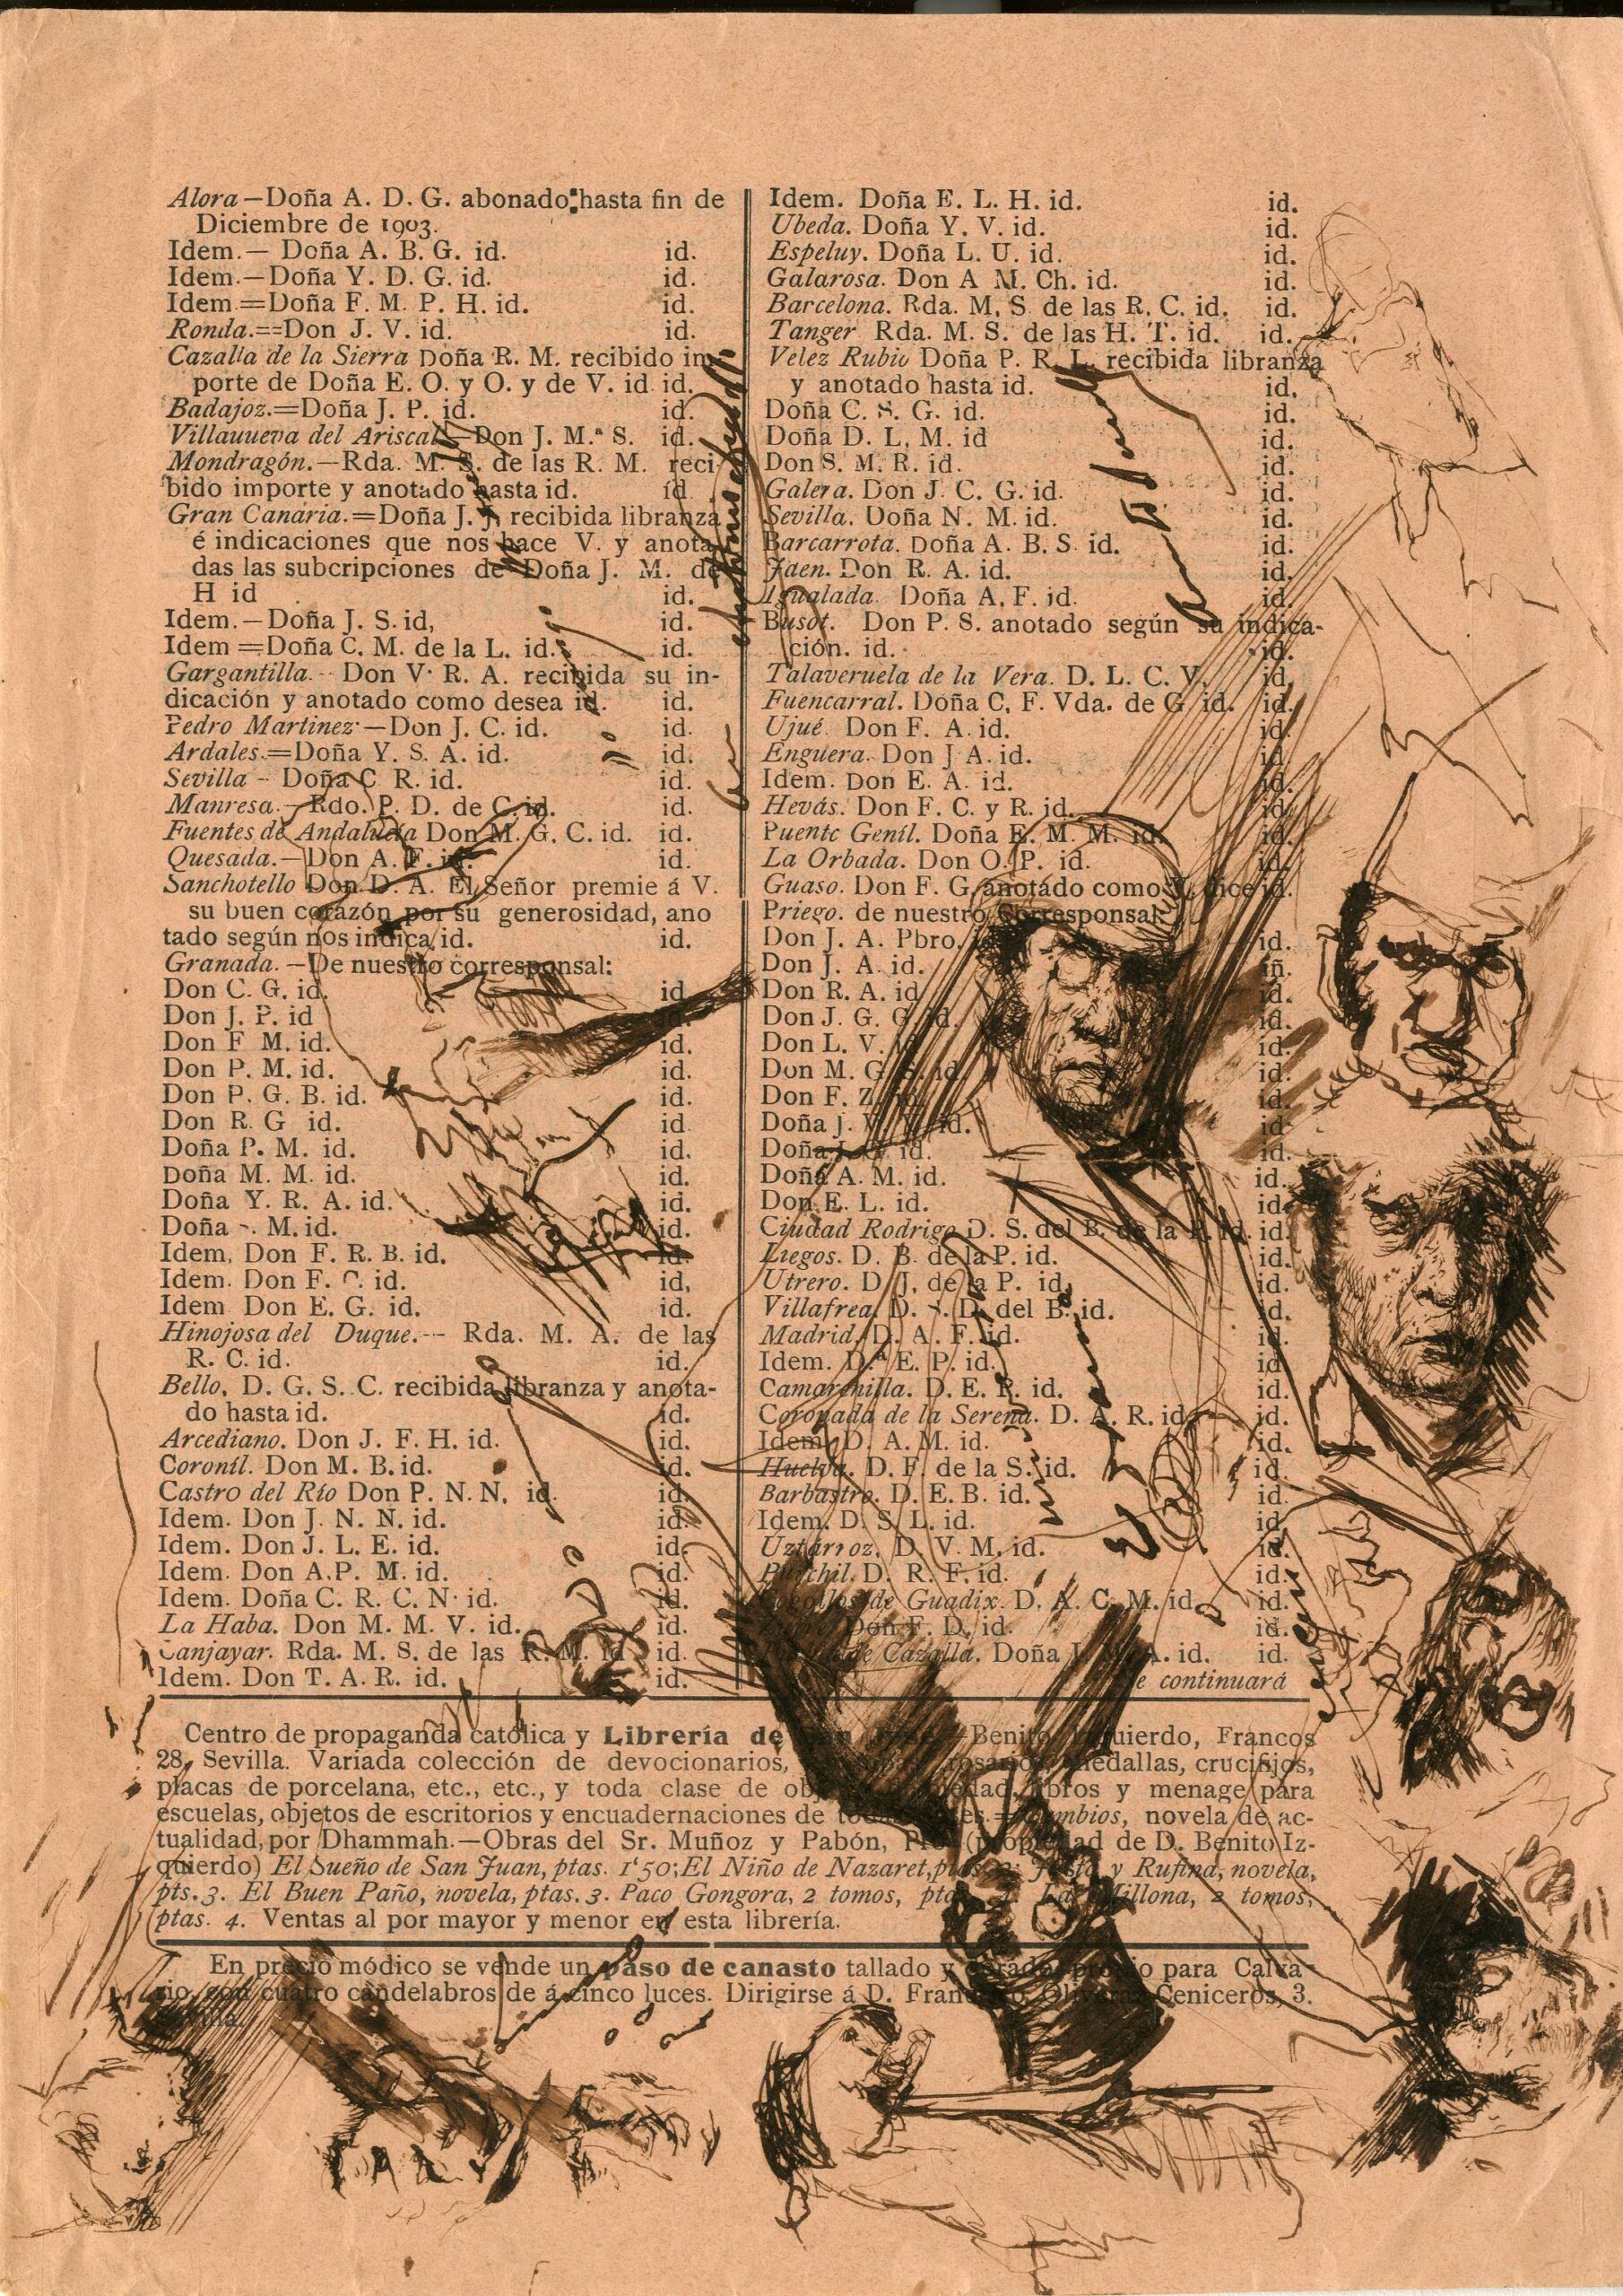 Alora—Doña A. D. G. abonado hasta fin de
Diciembre de 1903.
Idem.— Doña A. B. G. id. id.
Idem.—Doña Y. D. G. id. id.
Idem.=Doña F. M. P. H. id. id.
Ronda.==Don J. V. id. id.
Cazalla de la Sierra Doña R. M. recibido im-
porte de Doña E. O. y O. y de V. id. id.
Badajoz.=Doña J. P. id. id.
Villanueva del Ariscal—Don J. M.ª S. id.
Mondragón.—Rda. M. S. de las R. M. reci-
bido importe y anotado hasta id. id.
Gran Canaria.=Doña J. J, recibida libranza
é indicaciones que nos hace V. y anota-
das las subcripciones de Doña J. M. de
H id id.
Idem.—Doña J. S. id, id.
Idem =Doña C. M. de la L. id. id.
Gargantilla.-- Don V. R. A. recibida su in-
dicación y anotado como desea id. id.
Pedro Martinez—Don J. C. id. id.
Ardales.=Doña Y. S. A. id. id.
Sevilla - Doña C. R. id. id.
Manresa.—Rdo. P. D. de C. id. id.
Fuentes de Andalucia Don M. G. C. id. id.
Quesada.—Don A. F. id. id.
Sanchotello Don D. A. El Señor premie á V.
su buen corazón por su generosidad, ano
tado según nos indica id. id.
Granada.—De nuestro corresponsal:
Don C. G. id. id.
Don J. P. id
Don F M. id. id.
Don P. M. id. id.
Don P. G. B. id. id.
Don R. G id. id
Doña P. M. id. id.
Doña M. M. id. id.
Doña Y. R. A. id. id.
Doña M. id. id.
Idem, Don F. R. B. id. id.
Idem. Don F. C. id. id,
Idem Don E. G. id. id.
Hinojosa del Duque.-- Rda. M. A. de las
R. C. id. id.
Bello, D. G. S. C. recibida libranza y anota-
do hasta id. id.
Arcediano. Don J. F. H. id. id.
Coronil. Don M. B. id. id.
Castro del Río Don P. N. N, id. id.
Idem. Don J. N. N. id. id.
Idem. Don J. L. E. id. id.
Idem. Don A.P. M. id. id.
Idem. Doña C. R. C. N. id. id.
La Haba. Don M. M. V. id. id.
Canjayar. Rda. M. S. de las R. M. id id.
Idem. Don T. A. R. id. id.
Idem. Doña E. L. H. id. id.
Ubeda. Doña Y. V. id. id.
Espeluy. Doña L. U. id. id.
Galarosa. Don A M. Ch. id. id.
Barcelona. Rda. M, S de las R, C. id. id.
Tanger Rda. M. S. de las H. T. id. id.
Velez Rubio Doña P. R. L. recibida libranza
y anotado hasta id. id,
Doña C. S. G. id. id.
Doña D. L, M. id id.
Don S. M. R. id. id.
Galera. Don J. C. G. id. id.
Sevilla. Doña N. M. id. id.
Barcarrota. Doña A. B. S. id. id.
Jaen. Don R. A. id. id.
Igualada. Doña A. F. id. id.
Busot. Don P. S. anotado según su indica-
ción. id. id.
Talaveruela de la Vera. D. L. C. V. id.
Fuencarral. Doña C, F. Vda. de G. id. id.
Ujué. Don F. A. id. id.
Enguera. Don J A. id. id
Idem. Don E. A. id. id.
Hevás. Don F. C. y R. id. id.
Puente Genil. Doña E. M. M. id. id.
La Orbada. Don O. P. id. id.
Guaso. Don F. G. anotado como V. dice id.
Priego. de nuestro Corresponsal.
Don J. A. Pbro. id.
Don J. A. id. iñ.
Don R. A. id id.
Don J. G. G. id. id.
Don L. V. id.
Don M. G. id. id.
Don F. Z. id.
Doña J. id. id.
Doña id. id.
Doña A. M. id. id.
Don E. L. id. id.
Ciudad Rodrigo D. S. del B. de la P. id. id.
Liegos. D. B. de la P. id. id.
Utrero. D. J. de la P. id. id.
Villafrea. D. S. D. del B. id. id.
Madrid. D. A. F. id. id.
Idem. D.ª E. P. id. id.
Camarenilla. D. E. R. id. id.
Coronada de la Serena. D. A. R. id. id.
Idem. D. A. M. id. id.
Huelva. D. F. de la S. id. id.
Barbastro. D. E. B. id. id.
Idem. D. S. L. id. id
Uztarroz. D. V. M. id. id.
Purchil. D. R. F. id. id.
Cogollos de Guadix. D. A. C. M. id. id.
Don F. D. id. id.
de Cazalla. Doña A. id. id.
e continuará
Centro de propaganda católica y Librería de Benito Izquierdo, Francos
28, Sevilla. Variada colección de devocionarios, rosarios, medallas, crucifijos,
placas de porcelana, etc., etc., y toda clase de piedad, libros y menage para
escuelas, objetos de escritorios y encuadernaciones de todas =Cambios, novela de ac-
tualidad, por Dhammah.—Obras del Sr. Muñoz y Pabón, (propiedad de D. Benito Iz-
quierdo) El Sueño de San Juan, ptas. 1'50; El Niño de Nazaret, Justa y Rufina, novela,
pts. 3. El Buen Paño, novela, ptas. 3. Paco Gongora, 2 tomos, La Millona, 2 tomos,
ptas. 4. Ventas al por mayor y menor en esta librería.
En precio módico se vende un paso de canasto tallado y dorado, propio para Calva-
rio, con cuatro candelabros de á cinco luces. Dirigirse á D. Francisco Ceniceros, 3.
Sevilla.